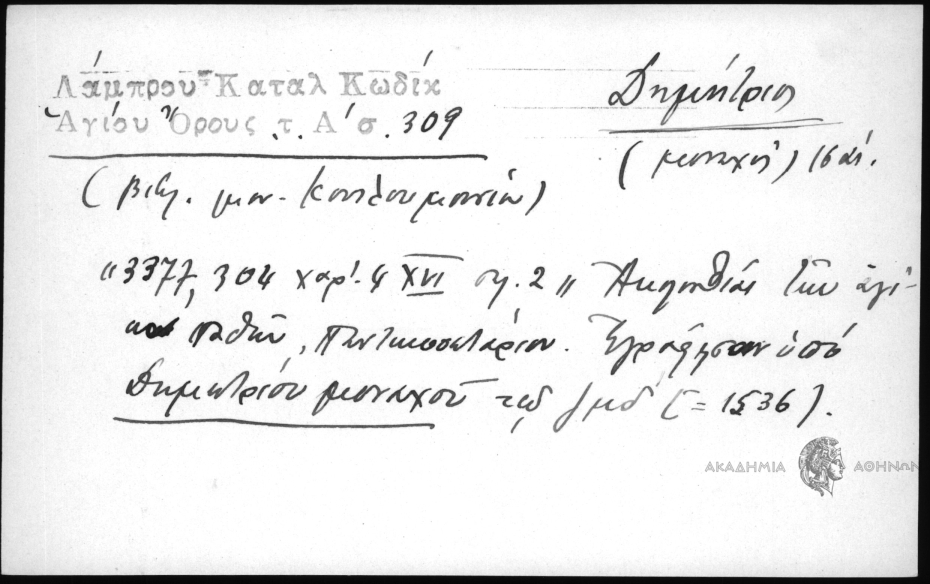 Λάμπρου Καταλ Κωδίκ
Ἁγίου Ὄρους τ. Α' σ. 309
Δημήτριος
(μοναχός) 16 αἰ.
(βιβλ. μον. Κουτλουμουσίου)
"3377, 304 χαρ. 4 XVI σελ. 2" Ἀκολουθίαι τῶν ἁγί-
παθῶν, Πεντηκοστάριον. Ἐγράφησαν ὑπὸ
Δημητρίου μοναχοῦ ζμδ (= 1536).
ΑΚΑΔΗΜΙΑ ΑΘΗΝΩΝ